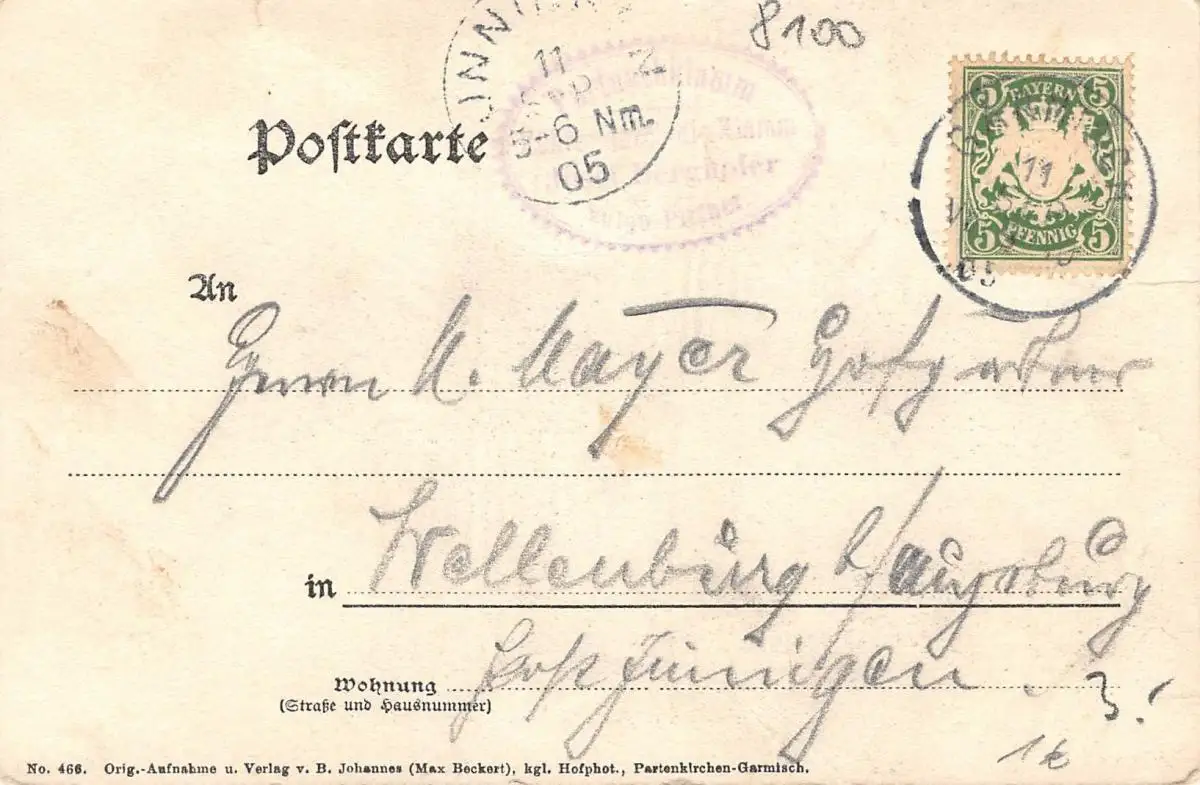 8100
Postkarte
11
SEP.
5-6 Nm.
05
5 BAYERN 5
5 PFENNIG 5
11
SEP
05
An
Herrn M. Mayer Hofgärtner
in Wellenburg b/Augsburg
Post Inningen.
Wohnung
(Straße und Hausnummer)
3.
1€
No. 466. Orig.-Aufnahme u. Verlag v. B. Johannes (Max Beckert), kgl. Hofphot., Partenkirchen-Garmisch.